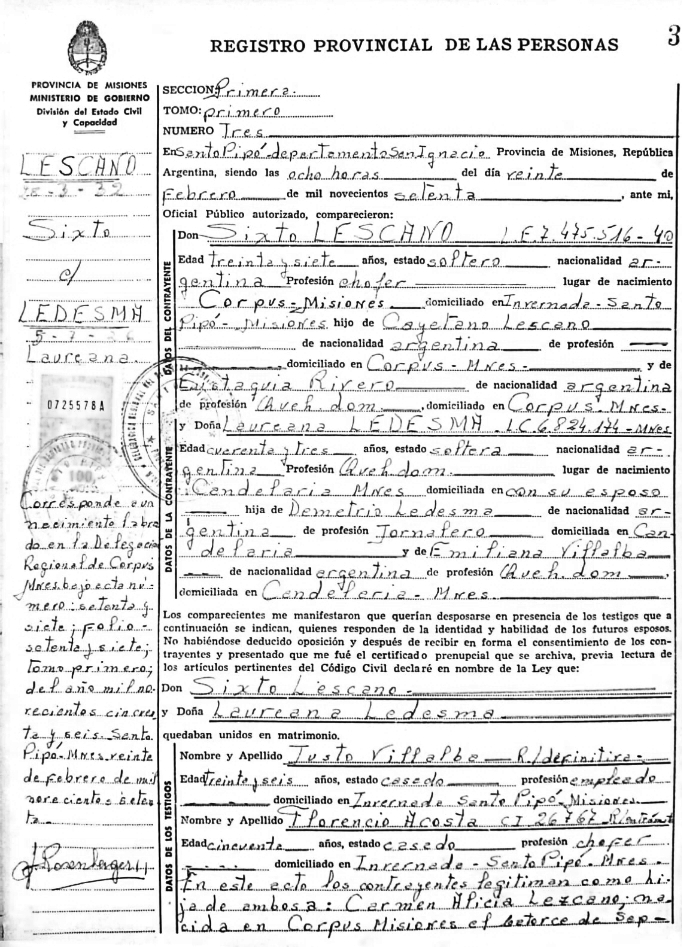 REGISTRO PROVINCIAL DE LAS PERSONAS
3
PROVINCIA DE MISIONES
MINISTERIO DE GOBIERNO
División del Estado Civil
y Capacidad
LESCANO
18-3-32
Sixto
c/
LEDESMA
5-7-
Laureana.
0725578A
100
Corresponde a un
nacimiento labra
do en la Delegación
Regional de Corpus
Mnes. bajo acta nú-
mero: setenta y
siete; folio-
setenta y siete;
Tomo primero;
del año mil no-
vecientos cincuen
ta y seis. Santo
Pipó-Mnes. veinte
de febrero de mil
novecientos seten
ta-
SECCION Primera.
TOMO: primero
NUMERO Tres
En Santo Pipó-departamento San Ignacio Provincia de Misiones, República
Argentina, siendo las ocho horas del día veinte de
febrero de mil novecientos setenta, ante mi,
Oficial Público autorizado, comparecieron:
DATOS DEL CONTRAYENTE
Don Sixto LESCANO L.E.7.475.516-
Edad treinta y siete años, estado soltero nacionalidad ar-
gentina Profesión chofer lugar de nacimiento
Corpus-Misiones domiciliado en Invernada-Santo
Pipó-Misiones hijo de Cayetano Lescano
de nacionalidad argentina de profesión
domiciliado en Corpus-Mnes- y de
Eustaquia Rivero de nacionalidad argentina
de profesión Queh. dom., domiciliado en Corpus-Mnes-
DATOS DE LA CONTRAYENTE
y Doña Laureana LEDESMA L.C.6.824.174-Mnes
Edad cuarenta y tres años, estado soltera nacionalidad ar-
gentina Profesión Queh. dom. lugar de nacimiento
Candelaria Mnes domiciliada en con su esposo
hija de Demetrio Ledesma de nacionalidad ar-
gentina de profesión Jornalero domiciliada en Can-
delaria y de Emiliana Villalba
de nacionalidad argentina de profesión Queh. dom.
domiciliada en Candelaria-Mnes.
Los comparecientes me manifestaron que querían desposarse en presencia de los testigos que a
continuación se indican, quienes responden de la identidad y habilidad de los futuros esposos.
No habiéndose deducido oposición y después de recibir en forma el consentimiento de los con-
trayentes y presentado que me fué el certificado prenupcial que se archiva, previa lectura de
los artículos pertinentes del Código Civil declaré en nombre de la Ley que:
Don Sixto Lescano
y Doña Laureana Ledesma
quedaban unidos en matrimonio.
DATOS DE LOS TESTIGOS
Nombre y Apellido Justo Villalba-R/definitiva-
Edad treinta y seis años, estado casado profesión empleado
domiciliado en Invernada Santo Pipó-Misiones.
Nombre y Apellido Florencio Acosta CI 26767
Edad cincuenta años, estado casado profesión chofer
domiciliado en Invernada-Santo Pipó-Mnes.
En este acto los contrayentes legitiman como hi-
ja de ambos a: Carmen Alicia Lezcano; na-
cida en Corpus Misiones el catorce de Sep-